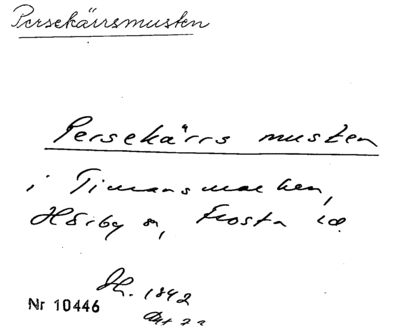 Persekärrsmusten
Persekärrs musten
i Timansmarken,
Hörby s, Frosta
1842
Nr 10446